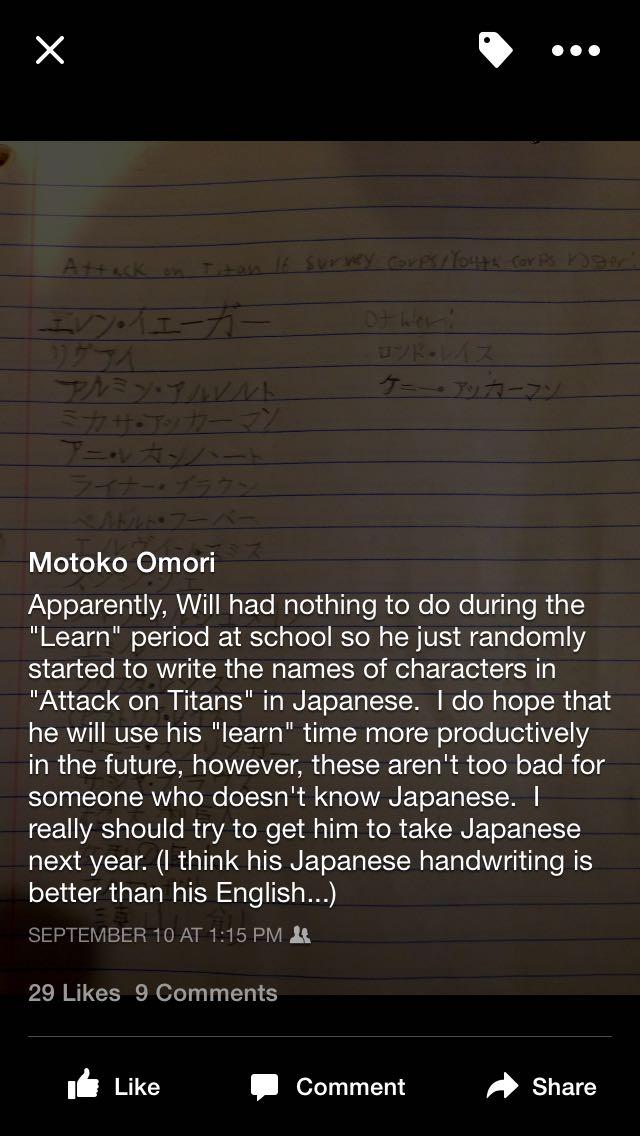 Attack on Titan 16 Survey Corps/Youth Corps roster:
エレン・イェーガー
リヴァイ
アルミン・アルレルト
ミカサ・アッカーマン
アニ・レオンハート
ライナー・ブラウン
ベルトルト・フーバー
Other:
ロッド・レイス
ケニー・アッカーマン
Motoko Omori
Apparently, Will had nothing to do during the
"Learn" period at school so he just randomly
started to write the names of characters in
"Attack on Titans" in Japanese.  I do hope that
he will use his "learn" time more productively
in the future, however, these aren't too bad for
someone who doesn't know Japanese.  I
really should try to get him to take Japanese
next year. (I think his Japanese handwriting is
better than his English...)
SEPTEMBER 10 AT 1:15 PM
29 Likes  9 Comments
Like
Comment
Share